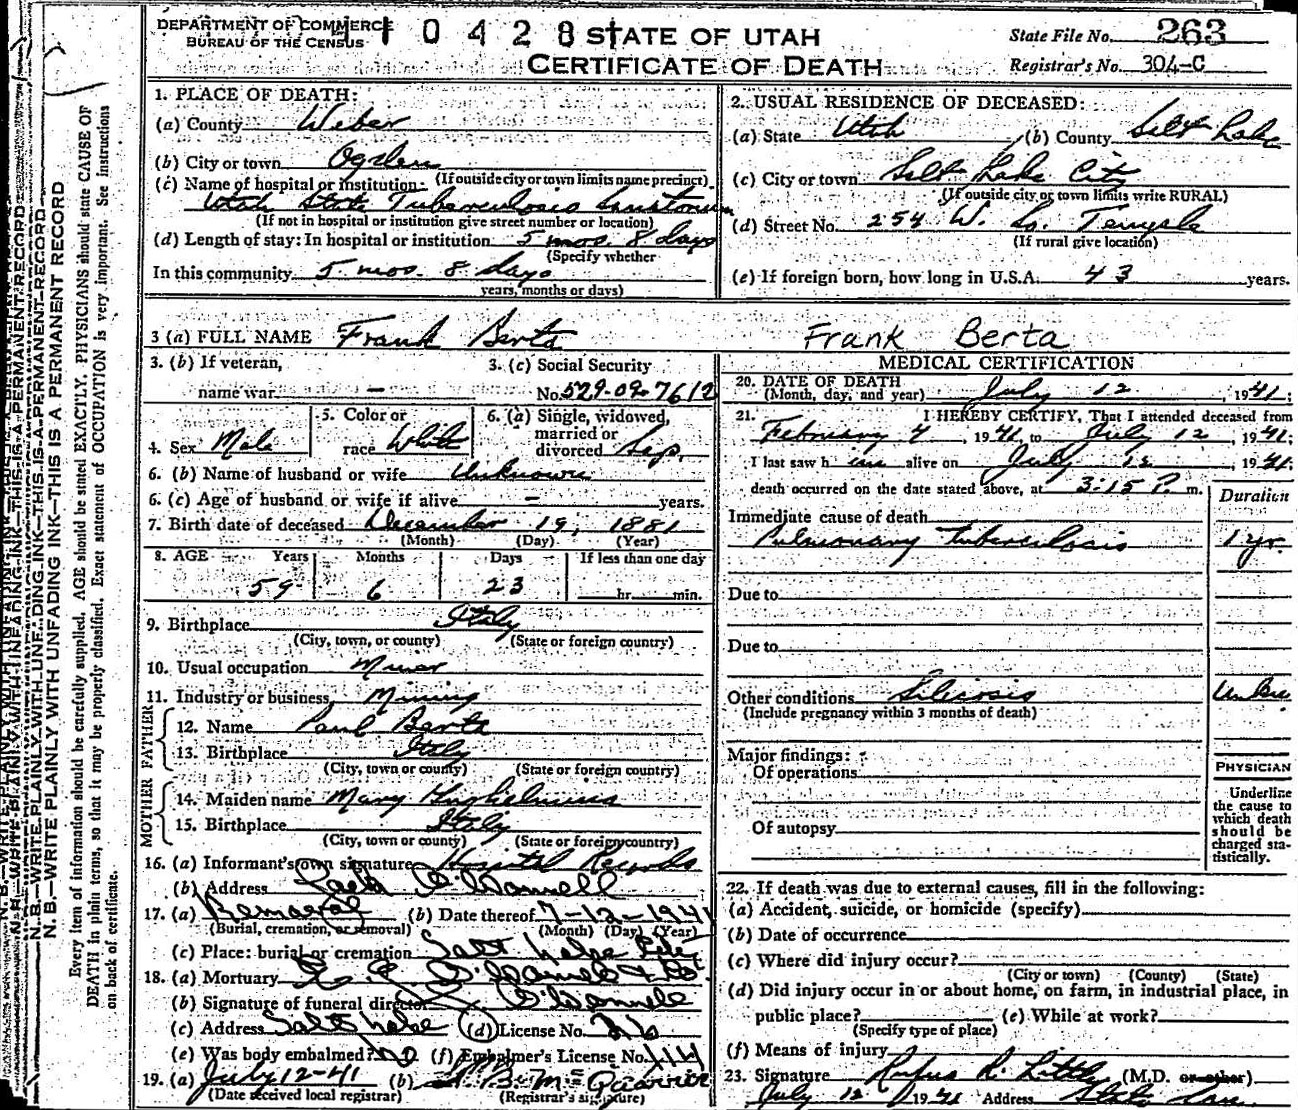 DEPARTMENT OF COMMERCE
BUREAU OF THE CENSUS
10428
STATE OF UTAH
CERTIFICATE OF DEATH
State File No. 263
Registrar's No. 304-C
N. B.—WRITE PLAINLY WITH UNFADING INK—THIS IS A PERMANENT RECORD
Every item of information should be carefully supplied. AGE should be stated EXACTLY. PHYSICIANS should state CAUSE OF
DEATH in plain terms, so that it may be properly classified. Exact statement of OCCUPATION is very important. See instructions
on back of certificate.
1. PLACE OF DEATH:
(a) County Weber
(b) City or town Ogden
(If outside city or town limits name precinct)
(c) Name of hospital or institution:
Utah State Tuberculosis Sanatorium
(If not in hospital or institution give street number or location)
(d) Length of stay: In hospital or institution 5 mos. 8 days
(Specify whether
In this community 5 mos. 8 days
years, months or days)
2. USUAL RESIDENCE OF DECEASED:
(a) State Utah (b) County Salt Lake
(c) City or town Salt Lake City
(If outside city or town limits write RURAL)
(d) Street No. 254 W. So. Temple
(If rural give location)
(e) If foreign born, how long in U.S.A. 43 years.
3 (a) FULL NAME Frank Berta Frank Berta
3. (b) If veteran,
name war -
3. (c) Social Security
No. 529-09-7612
4. Sex Male
5. Color or
race White
6. (a) Single, widowed,
married or
divorced Sep.
6. (b) Name of husband or wife Unknown
6. (c) Age of husband or wife if alive - years.
7. Birth date of deceased December 19, 1881
(Month) (Day) (Year)
8. AGE Years Months Days If less than one day
59 6 23 hr. min.
9. Birthplace Italy
(City, town, or county) (State or foreign country)
10. Usual occupation Miner
11. Industry or business Mining
FATHER
12. Name Paul Berta
13. Birthplace Italy
(City, town or county) (State or foreign country)
MOTHER
14. Maiden name Mary
15. Birthplace Italy
(City, town or county) (State or foreign country)
16. (a) Informant's own signature Hospital Records
(b) Address O'Donnell
17. (a) Removal (b) Date thereof 7-12-1941
(Burial, cremation, or removal) (Month) (Day) (Year)
(c) Place: burial or cremation Salt Lake City
18. (a) Mortuary O'Donnell & Co.
(b) Signature of funeral director O'Donnell
(c) Address Salt Lake (d) License No. 26
(e) Was body embalmed? No (f) Embalmer's License No. 444
19. (a) July 12-41 (b)
(Date received local registrar) (Registrar's signature)
MEDICAL CERTIFICATION
20. DATE OF DEATH
(Month, day, and year) July 12, 1941;
21. I HEREBY CERTIFY, That I attended deceased from
February 4, 1941 to July 12, 1941;
I last saw him alive on July 12, 1941;
death occurred on the date stated above, at 3:15 P. m.
Duration
Immediate cause of death
Pulmonary Tuberculosis 1 yr.
Due to
Due to
Other conditions Silicosis
(Include pregnancy within 3 months of death)
Major findings:
Of operations
Of autopsy
PHYSICIAN
Underline
the cause to
which death
should be
charged sta-
tistically.
22. If death was due to external causes, fill in the following:
(a) Accident, suicide, or homicide (specify)
(b) Date of occurrence
(c) Where did injury occur?
(City or town) (County) (State)
(d) Did injury occur in or about home, on farm, in industrial place, in
public place? (e) While at work?
(Specify type of place)
(f) Means of injury
23. Signature Rufus R. Little (M.D. or other)
July 12 1941 Address State San.